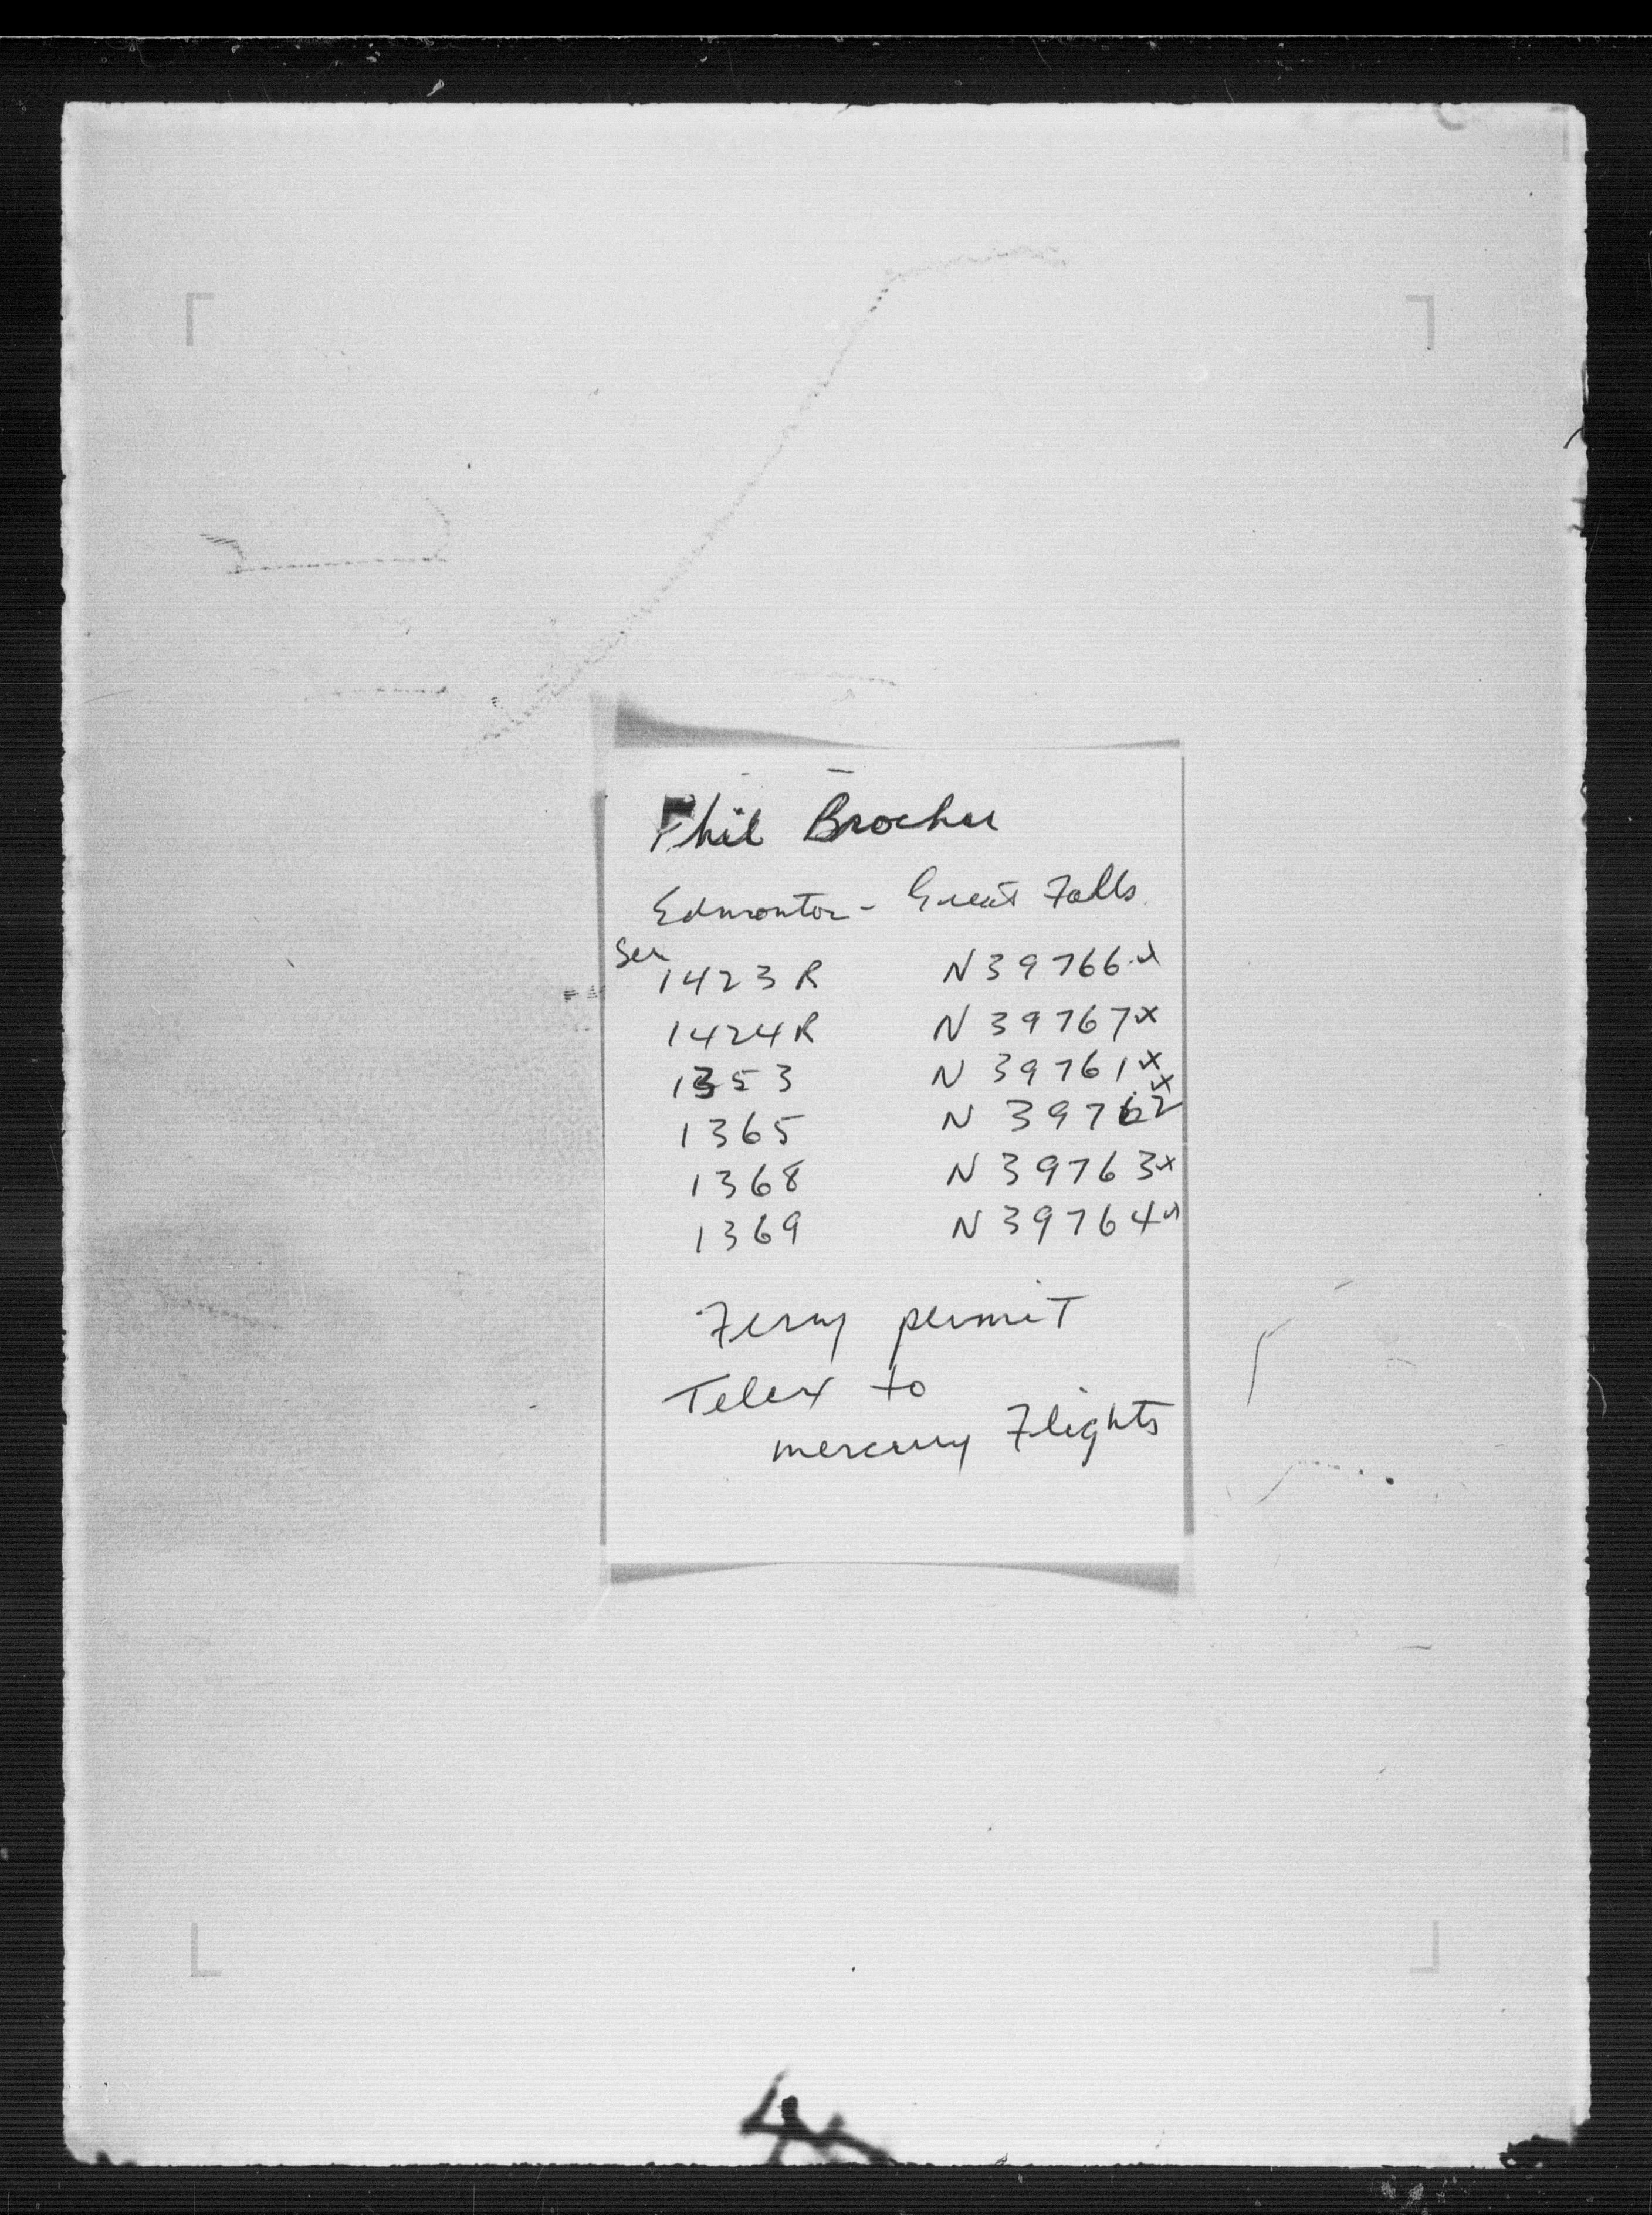 Phil Brochu
Edmonton - Great Falls
Ser
1423 R N39766 x
1424 R N 39767 x
1353 N 39761 x
1365 N 39762 x
1368 N 39763 x
1369 N 39764 x
Ferry permit
Telex to
mercury Flights